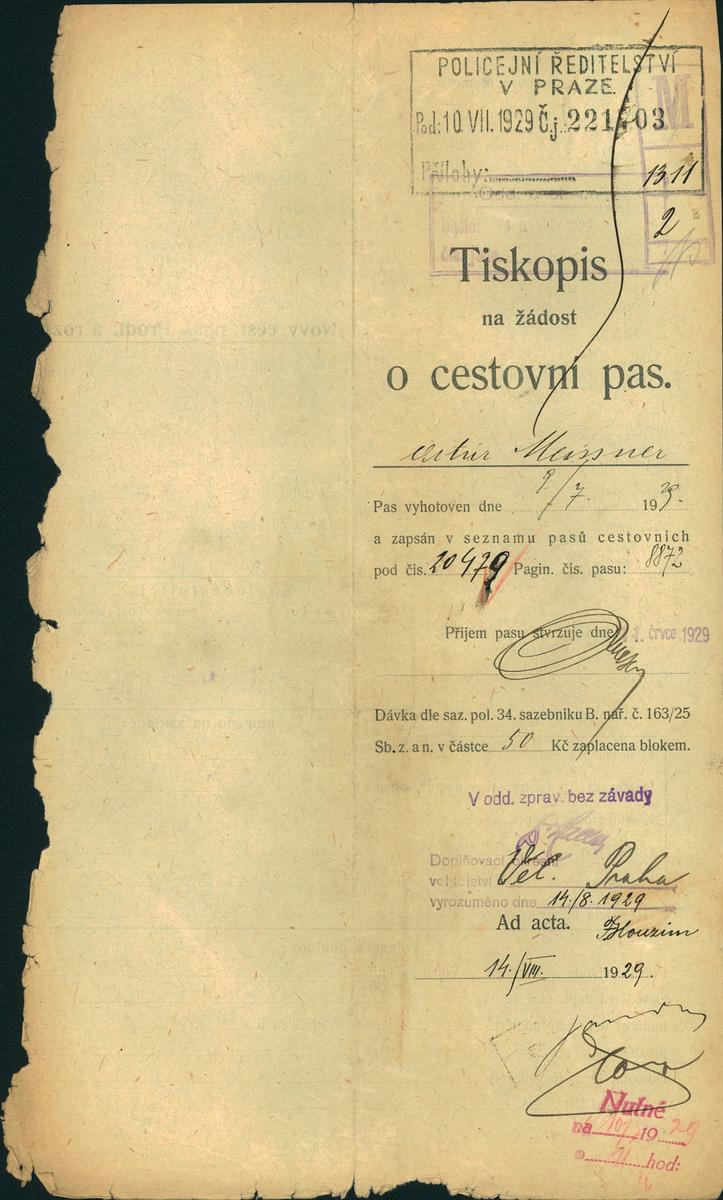 POLICEJNÍ ŘEDITELSTVÍ
V PRAZE
Pod: 10. VII. 1929 Č.j. 221 03
Přílohy:
M
1311
2
Tiskopis
na žádost
o cestovní pas.
Artur Meissner
Pas vyhotoven dne 9/7. 1929.
a zapsán v seznamu pasů cestovních
pod čís. 20479 Pagin. čís. pasu: 8872
Příjem pasu stvrzuje dne 1. črvce 1929
Dávka dle saz. pol. 34. sazebníku B. nař. č. 163/25
Sb. z. a n. v částce 50 Kč zaplacena blokem.
V odd. zprav. bez závady
Doplňovací okresní
velitelství Vel. Praha
vyrozuměno dne 14./8. 1929
Ad acta.
14./VIII. 1929.
Nutné
na 19 29
o hod: